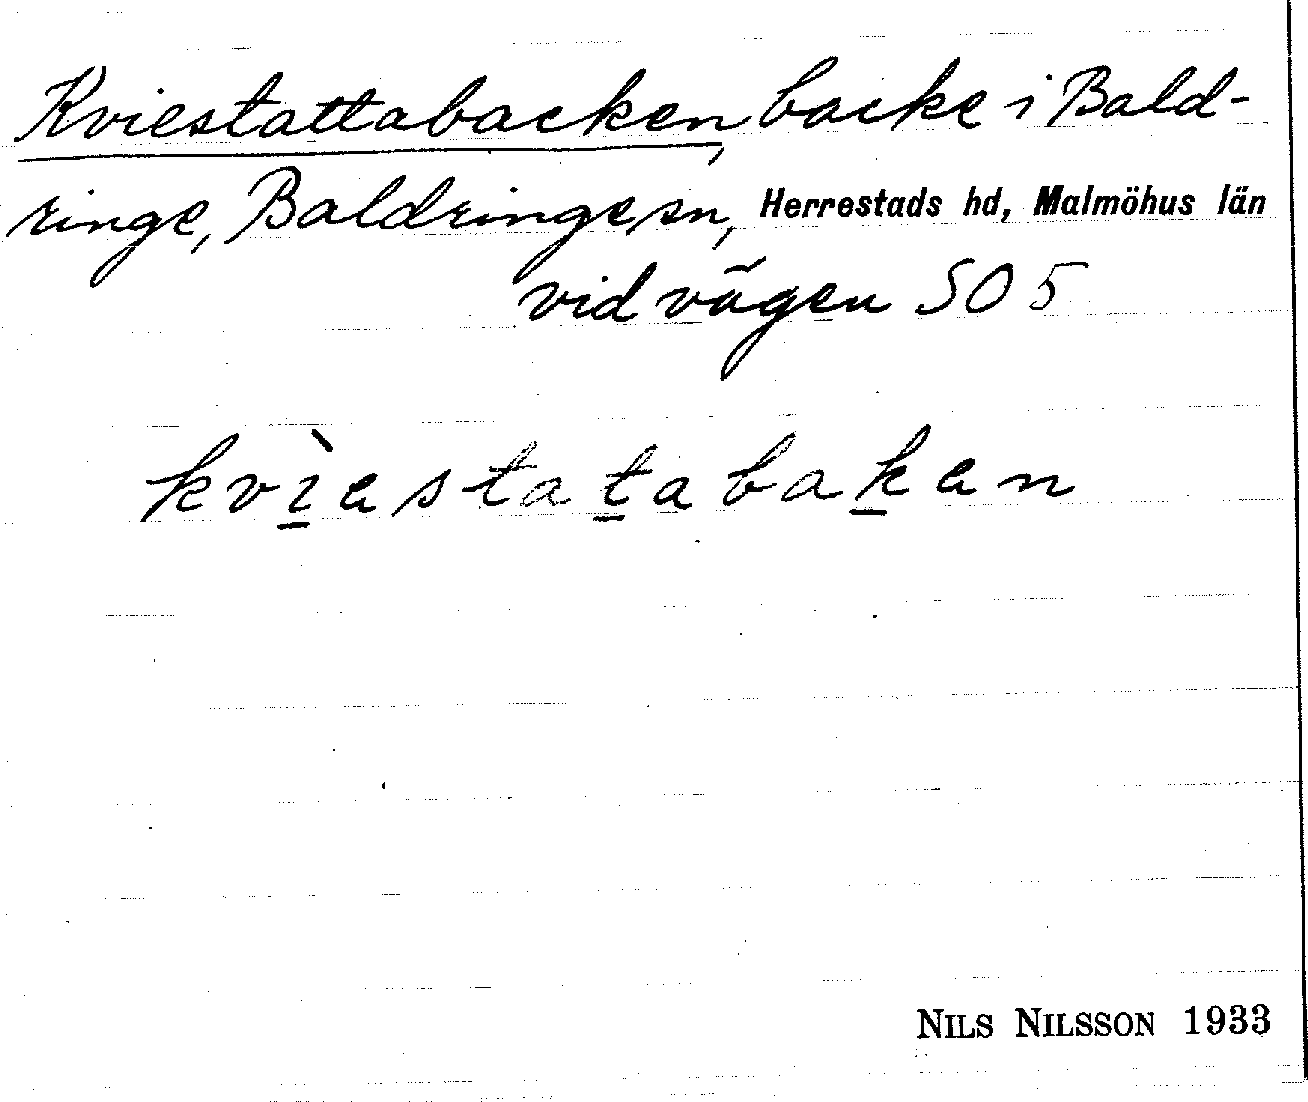 Kviestattabacken, backe i Bald-
ringe, Baldringe sn, Herrestads hd, Malmöhus län
vid vägen SO 5
kvì̱estaṯabaḵen
NILS NILSSON 1933